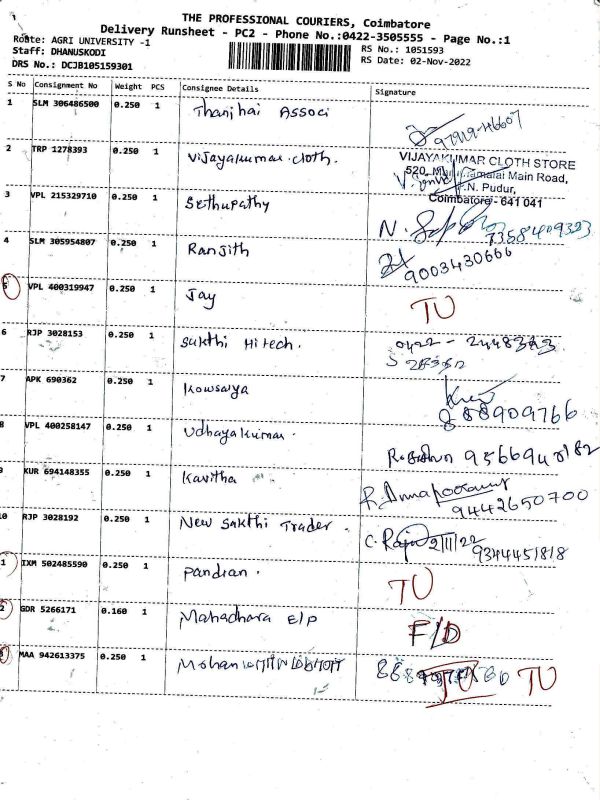 THE PROFESSIONAL COURIERS, Coimbatore
Delivery Runsheet - PC2 - Phone No.:0422-3505555 - Page No.:1
Route: AGRI UNIVERSITY -1
Staff: DHANUSKODI
DRS No.: DCJB105159301
RS No.: 1051593
RS Date: 02-Nov-2022
S No Consignment No Weight PCS Consignee Details Signature
1 SLM 306486500 0.250 1 Thanjhai Associ 97919-46607
2 TRP 1278393 0.250 1 Vijayakumar.cloth.
VIJAYAKUMAR CLOTH STORE
520, Main Road,
P.N. Pudur,
Coimbatore - 641 041
3 VPL 215329710 0.250 1 Sethupathy N. 7358409323
4 SLM 305954807 0.250 1 Ranjith 9003430666
5 VPL 400319947 0.250 1 Jay TU
6 RJP 3028153 0.250 1 Sakthi Hitech. 0422 -
7 APK 690362 0.250 1 Kowsalya 888909766
8 VPL 400258147 0.250 1 Udhayakumar.
9 KUR 694148355 0.250 1 Kavitha R. Annapoorani 9442650700
10 RJP 3028192 0.250 1 New Sakthi Trader. C. Raju 2/11/22 9344451818
1 IXM 502485590 0.250 1 Pandian. TU
2 GDR 5266171 0.160 1 Mahadhara E/P F/D
MAA 942613375 0.250 1 Mohan TU TU